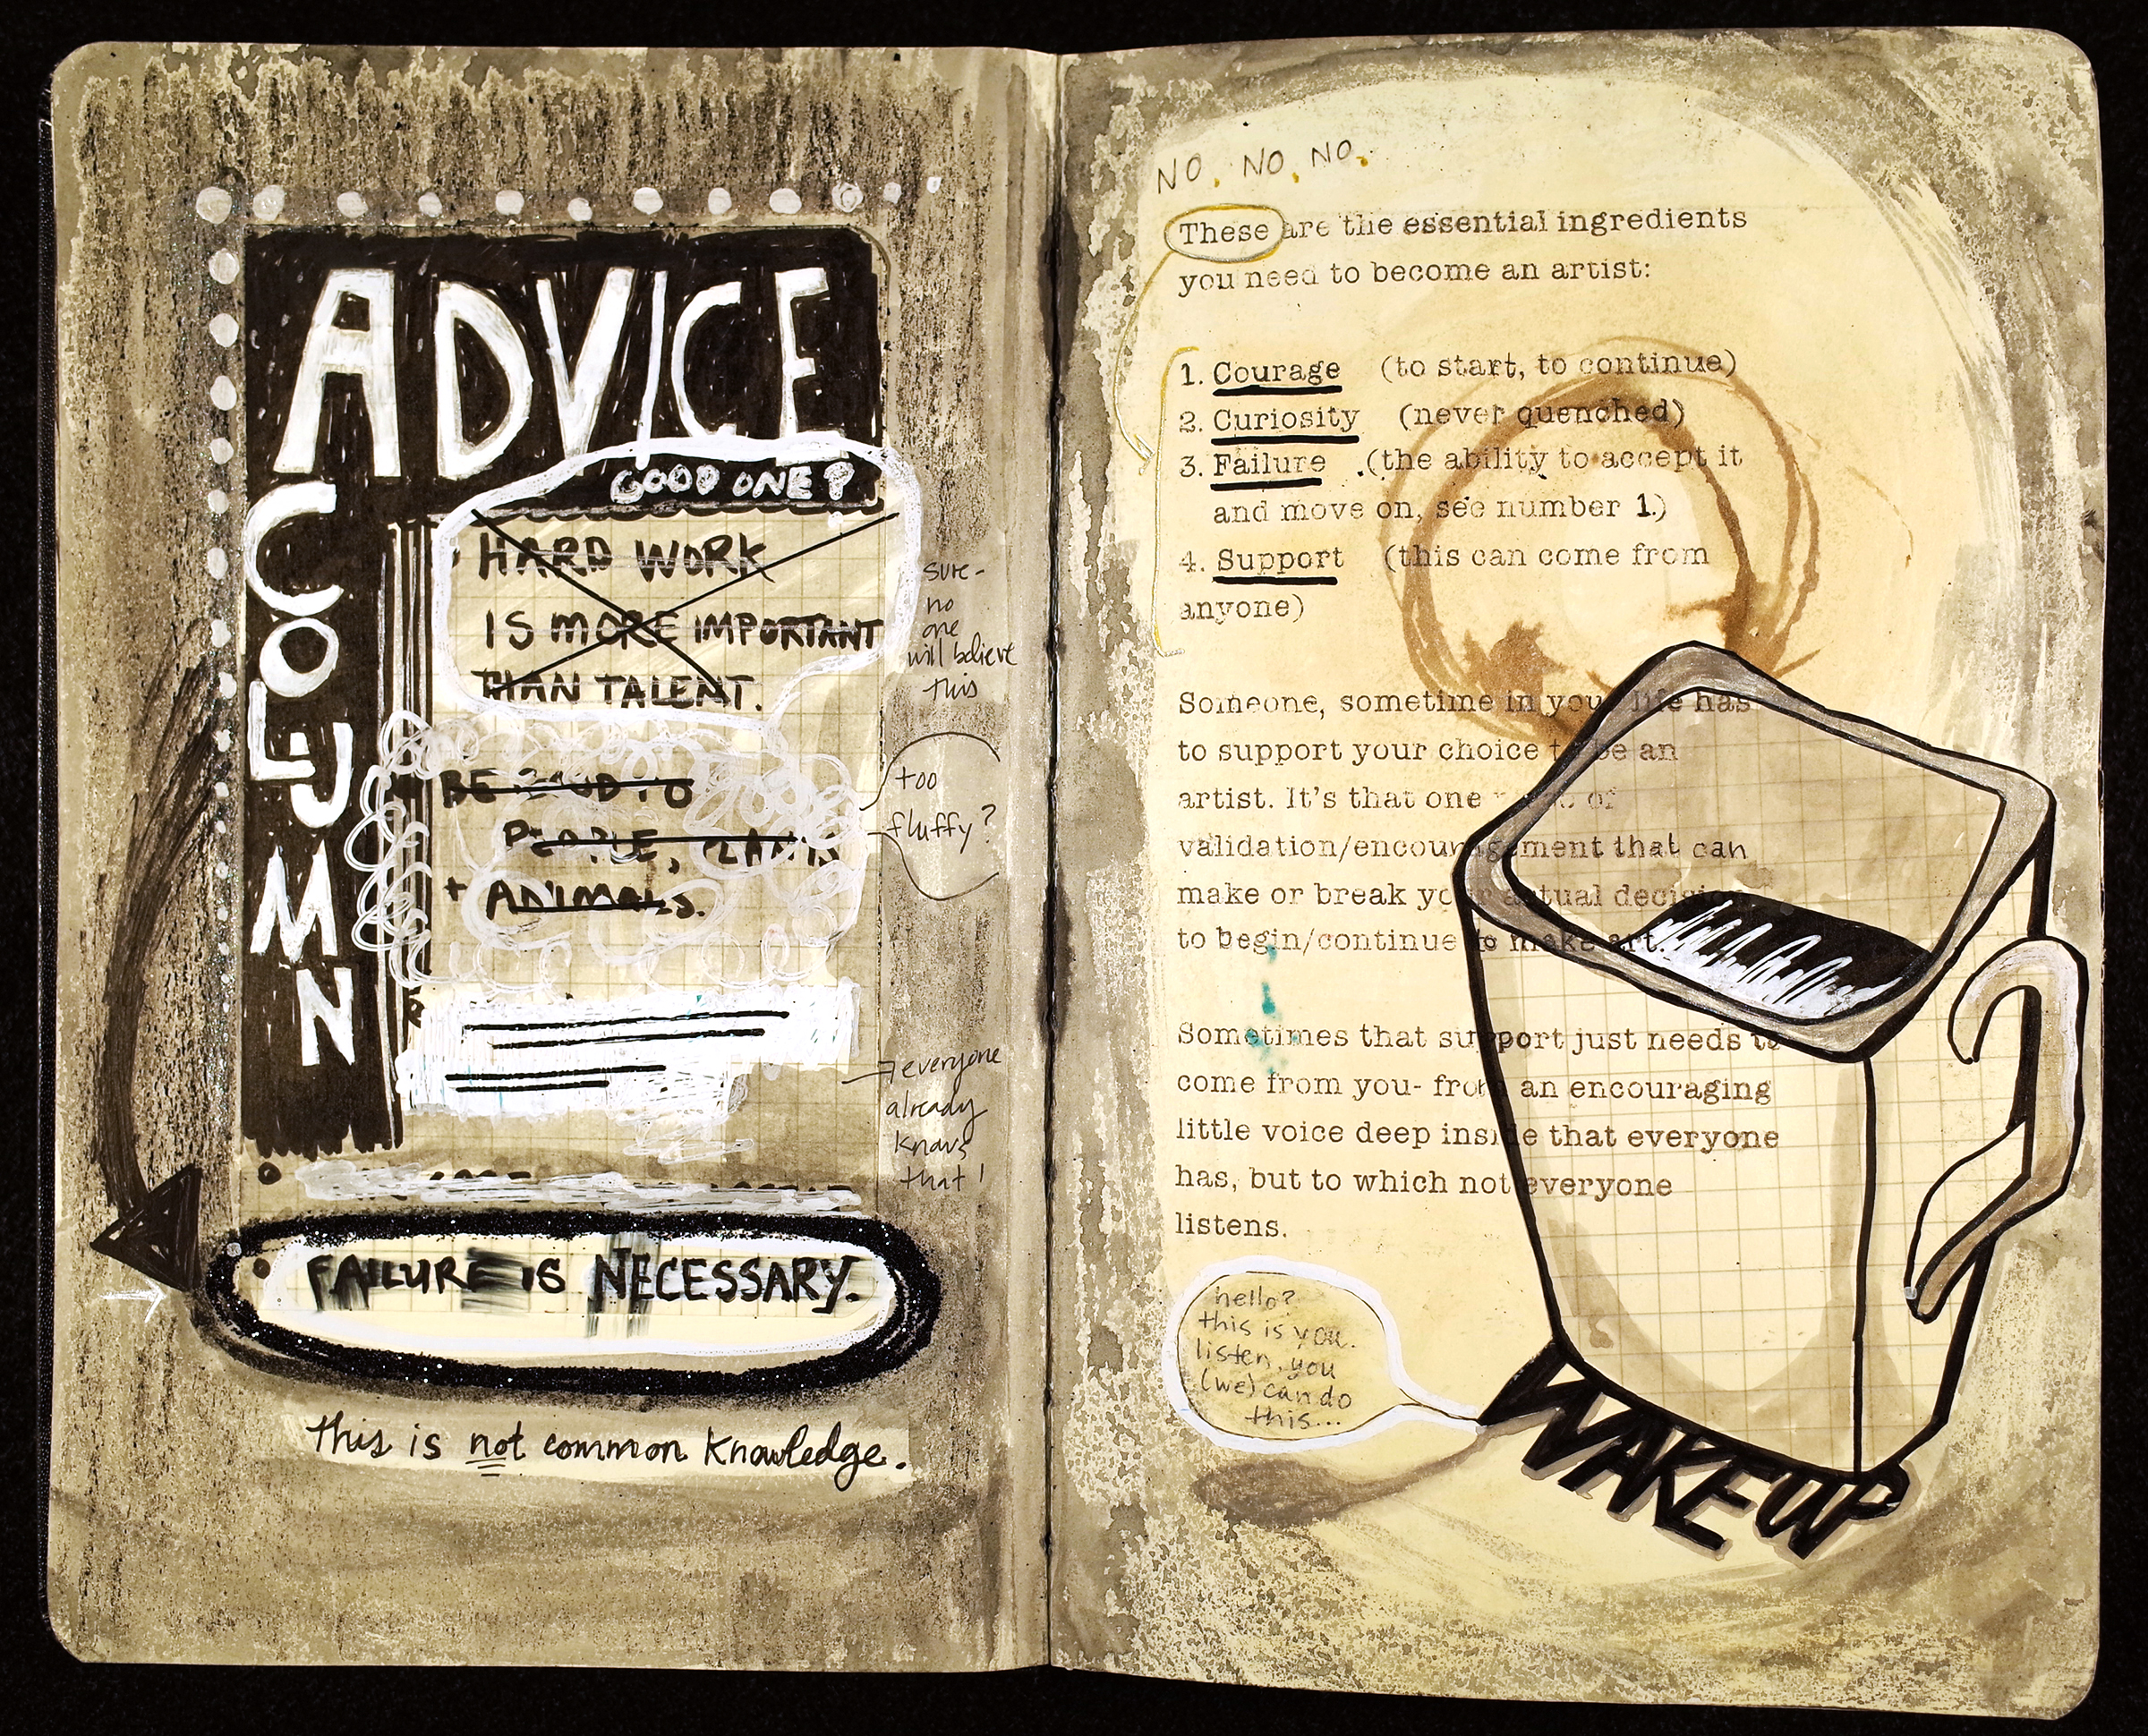 ADVICE
COLUMN
GOOD ONE?
HARD WORK
IS MORE IMPORTANT
THAN TALENT.
sure-
no
one
will believe
this
BE GOOD TO
PEOPLE, PLANTS
+ ANIMALS.
too
fluffy?
everyone
already
knows
that!
FAILURE IS NECESSARY.
this is not common knowledge.
NO, NO, NO,
These are the essential ingredients
you need to become an artist:
1. Courage (to start, to continue)
2. Curiosity (never quenched)
3. Failure (the ability to accept it
and move on, see number 1.)
4. Support (this can come from
anyone)
Someone, sometime in your life has
to support your choice to be an
artist. It's that one of
validation/encouragement that can
make or break your actual decision
to begin/continue to make art.
Sometimes that support just needs to
come from you- from an encouraging
little voice deep inside that everyone
has, but to which not everyone
listens.
hello?
this is you.
listen, you
(we) can do
this...
WAKE UP